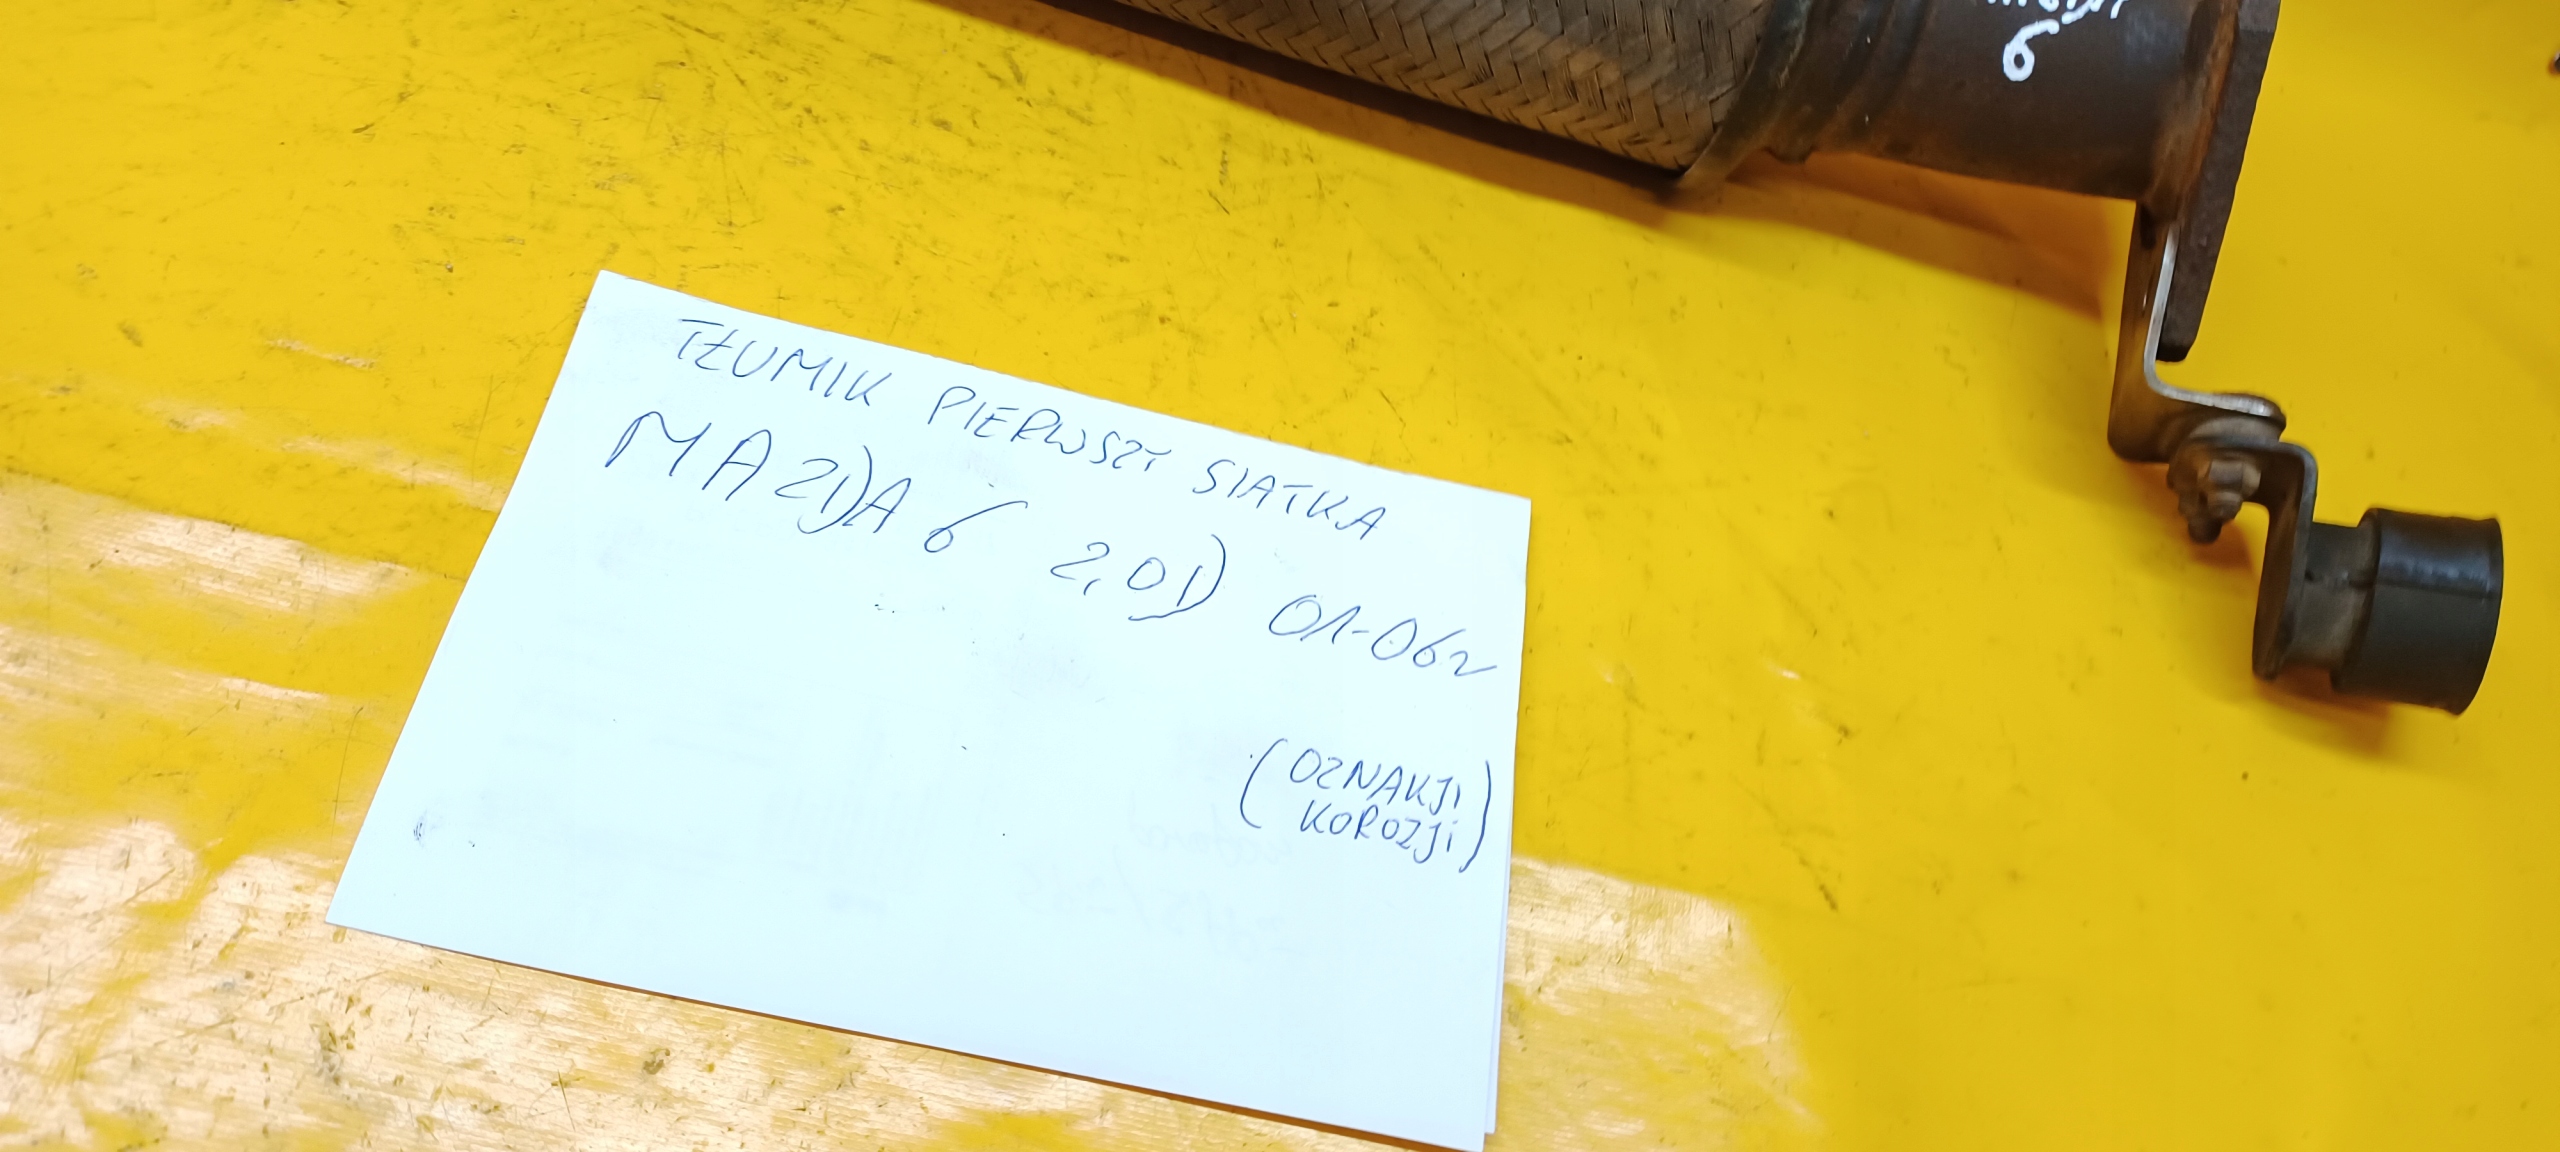 6
TŁUMIK PIERWSZY SIATKA
MAZDA 6 2,0D 01-06r
(OZNAKJI
KOROZJI)